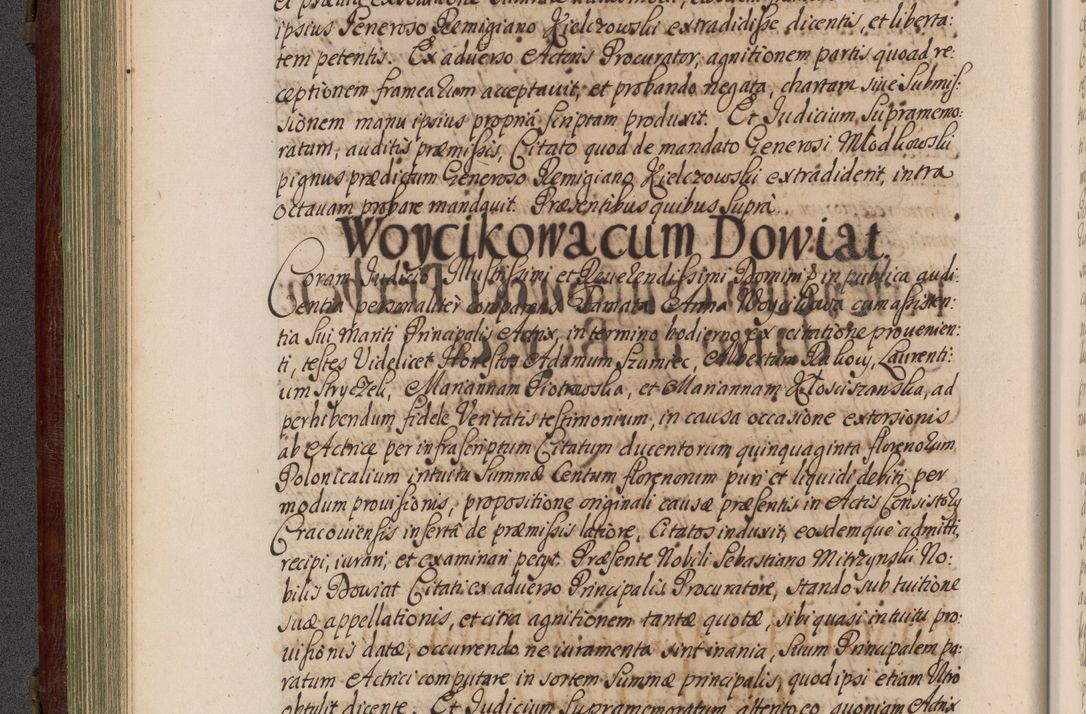 ipsius Generoso Remigiano Kielczowski extradidisse dicentis, et liberta:
tem petentis. Ex adverso Actoris Procurator, agnitionem partis quoad re:
ceptionem framearum acceptavit, et probando negata, chartam sive submis:
sionem manu ipsius propria scriptam produxit. Et Judicium, supramemo:
ratum, auditis præmissis, Citato quod de mandato Generosi Młodkowski
pignus prædictum Generoso Remigiano Kielczowski extradiderit, intra
octauam probare mandauit. Præsentibus quibus supra.
Woycikowa cum Dowiat.
Coram Judicio Illustrissimi et Reverendissimi Domini in publica audi:
entia personaliter comparens Famata Anna Woycikowa cum assisten:
tia sui Mariti Principalis Actrix, in termino hodierno ex citatione provenien:
ti, testes Videlicet Honestos Adamum Szumiec, Albertum Rakowy, Laurenti:
um Stryżek, Mariannam Piotrowska, et Mariannam Kłosciszanska, ad
perhibendum fidele Veritatis testimonium, in causa occasione extorsionis
ab Actrice per infrascriptum Citatum ducentorum quinquaginta florenorum
Polonicalium intuitu Summæ Centum florenorum puri et liquidi debiti per
modum provisionis, propositione originali causæ præsentis in Actis Consistory
Cracoviensis inserta de præmissis latiore, Citatos induxit, eosdemque admitti,
recipi, iurari, et examinari petyt. Præsente Nobili Sebastiano Mitrzynski No:
bilis Dowiat Citati ex adverso Principalis Procuratore, stando sub tuitione
suæ appellationis, et citra agnitionem tantæ quotæ, sibi quasi intuitu pro:
visionis datæ, occurrendo ne iuramenta sint inania, suum Principalem pa:
ratum Actrici computare in sortem Summæ principalis, quod ipsi etiam Ultro
obtulit dicente. Et Judicium Supramemoratum, attento eo, quoniam Actrix